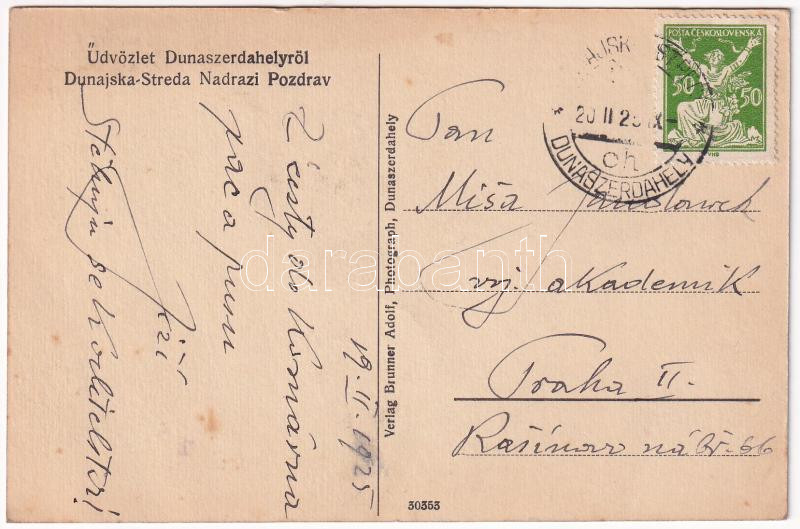 Üdvözlet Dunaszerdahelyröl
Dunajska-Streda Nadrazi Pozdrav
Z cesty do Komárna
pac a pusu
Jiří
Stěhuju se k velitelství!
19. II. 1925
Verlag Brunner Adolf, Photograph, Dunaszerdahely
30353
POŠTA ČESKOSLOVENSKÁ
50 50
20 II 25
ch
DUNASZERDAHELY
Pan
Miša
voj. akademik
Praha II.
Rašínovo nábř. 66
darabanth